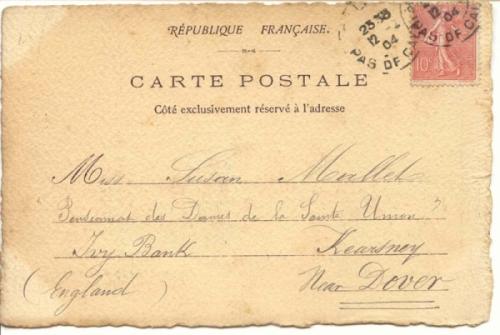 RÉPUBLIQUE FRANÇAISE.
CARTE POSTALE
Côté exclusivement réservé à l'adresse
23-35
12-4
04
PAS DE CA
12
04
PAS DE CA
10c
Miss Susan Mallet
"Pensionnat des Dames de la Sainte Union"
Ivy Bank Kearsney
(England) Near Dover